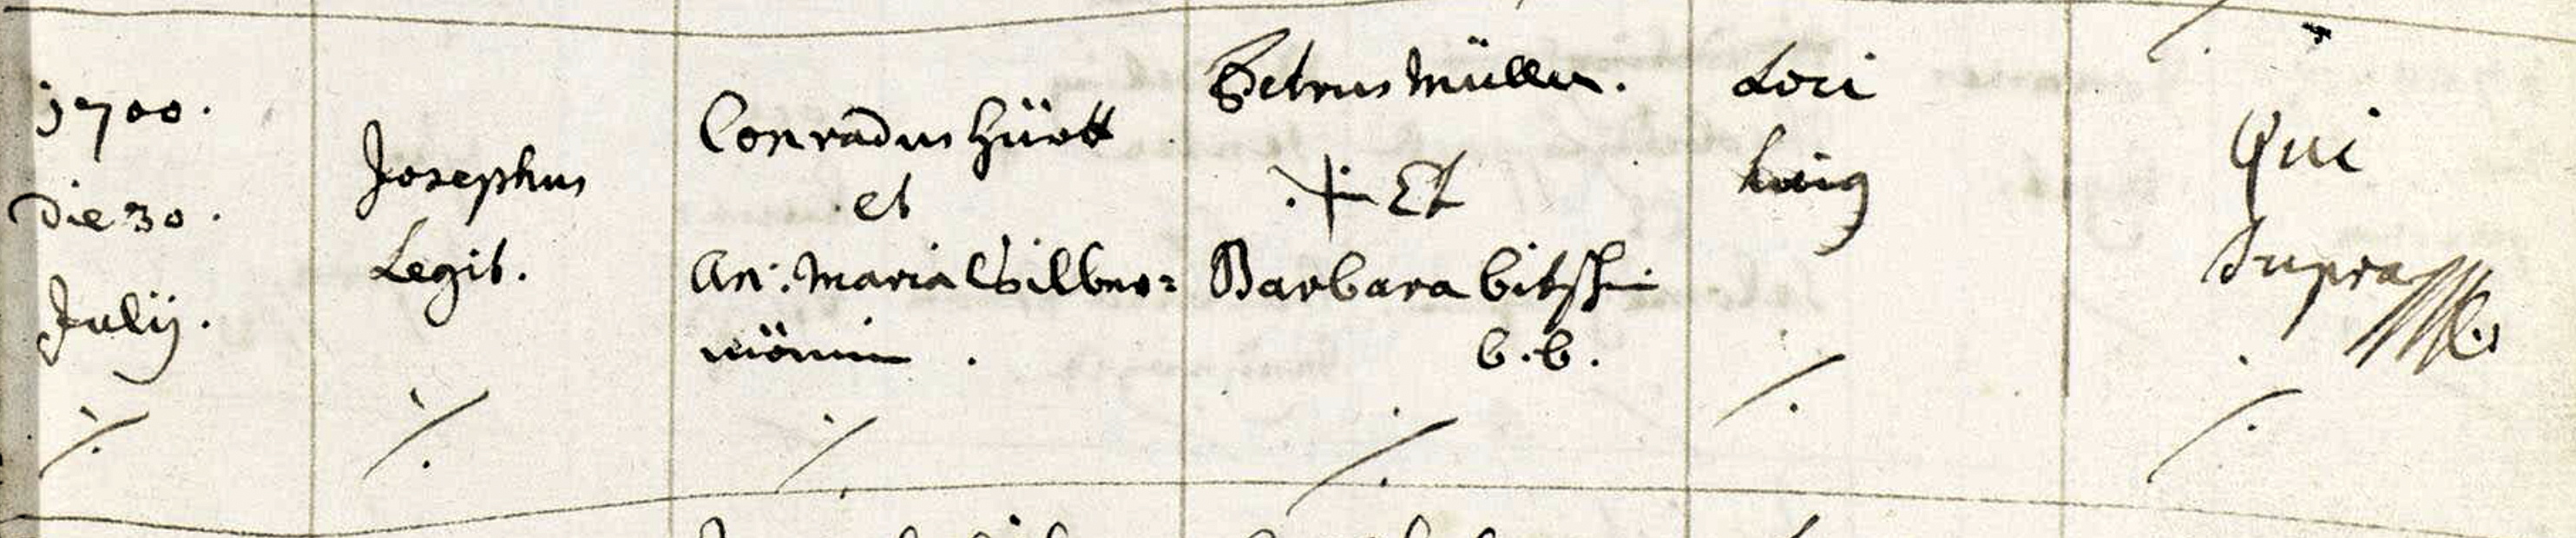 1700.
Die 30.
Julij.
Josephus
Legit.
Conradus Hürtt
et
An: Maria
Petrus Müller.
Et
Barbara
b.b.
Loci
hujq
Qui
Supra